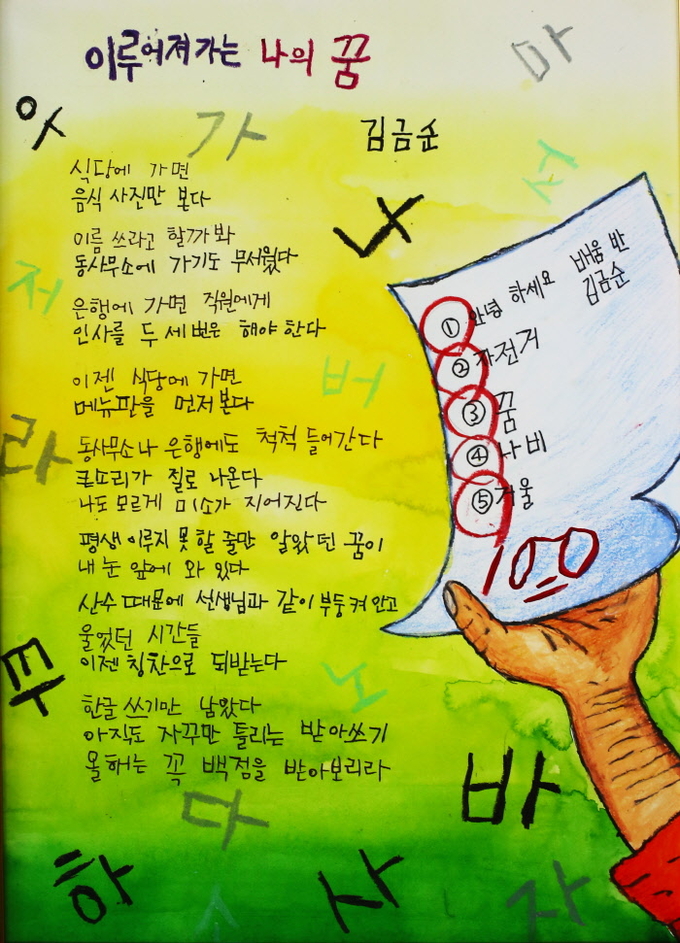 이루어져가는 나의 꿈
김금순
식당에 가면
음식 사진만 본다
이름 쓰라고 할까봐
동사무소에 가기도 무서웠다
은행에 가면 직원에게
인사를 두 세 번은 해야 한다
이젠 식당에 가면
메뉴판을 먼저 본다
동사무소나 은행에도 척척 들어간다
콧소리가 질로 나온다
나도 모르게 미소가 지어진다
평생 이루지 못 할 줄만 알았던 꿈이
내 눈 앞에 와 있다
산수 때문에 선생님과 같이 부둥켜 안고
울었던 시간들
이젠 칭찬으로 되받는다
한글 쓰기만 남았다
아직도 자꾸만 틀리는 받아쓰기
올해는 꼭 백점을 받아보리라
배움 반
김금순
① 안녕 하세요
② 자전거
③ 꿈
④ 나비
⑤ 거울
100
마
가
저
버
라
노
바
다
하
사
자